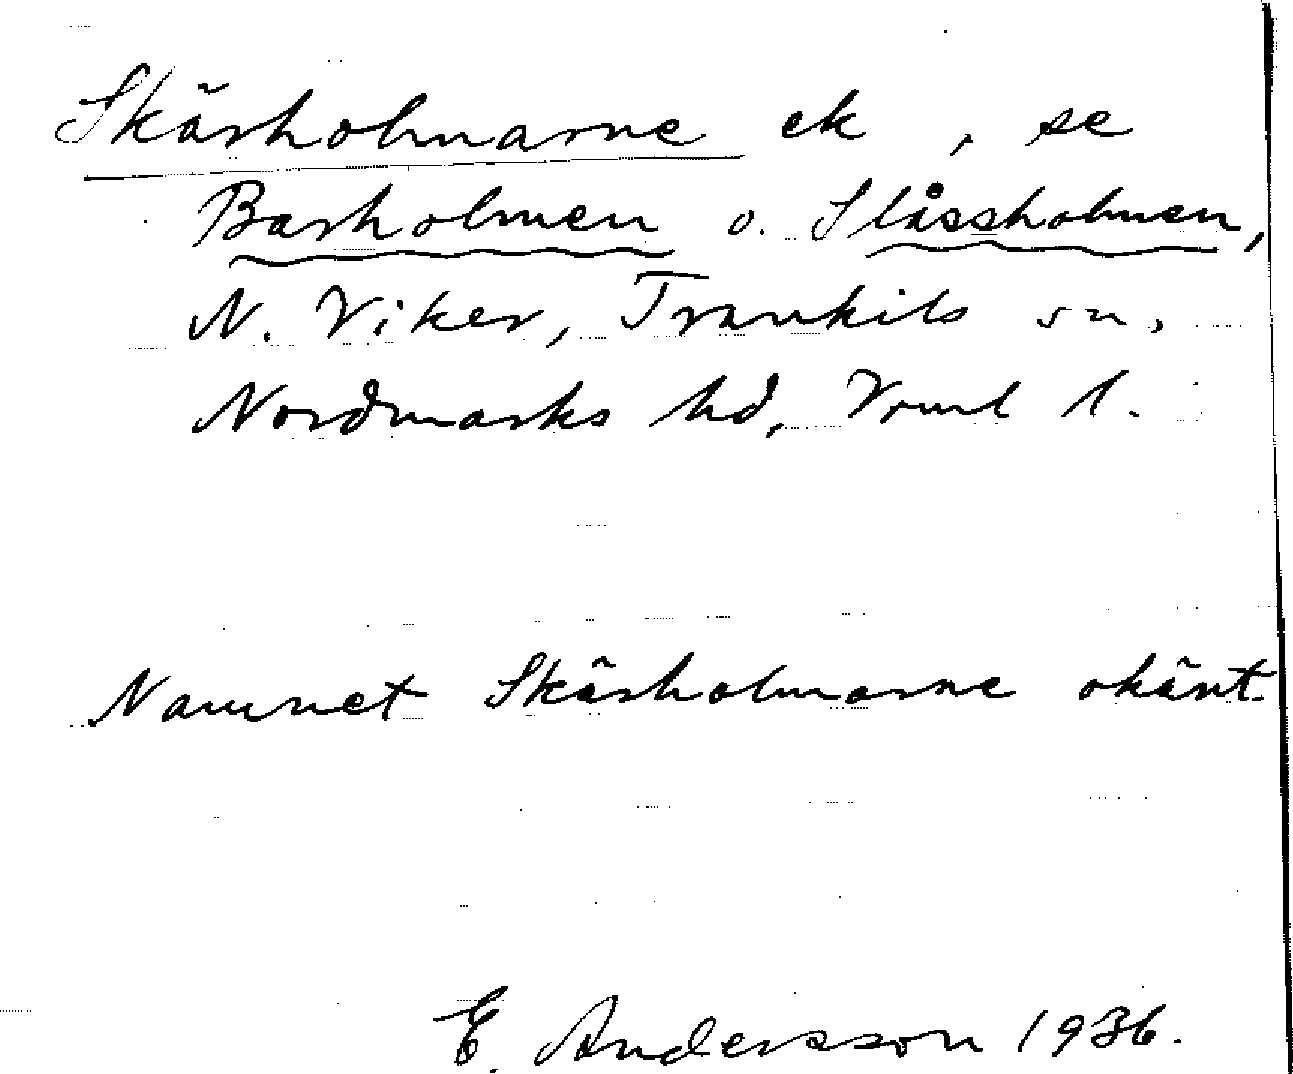 Skärholmarne ek , se
Barholmen o. Slåssholmen,
N. Viker, Trankils sn,
Nordmarks hd, Vrml l.
Namnet Skärholmarne okänt.
E. Andersson 1936.